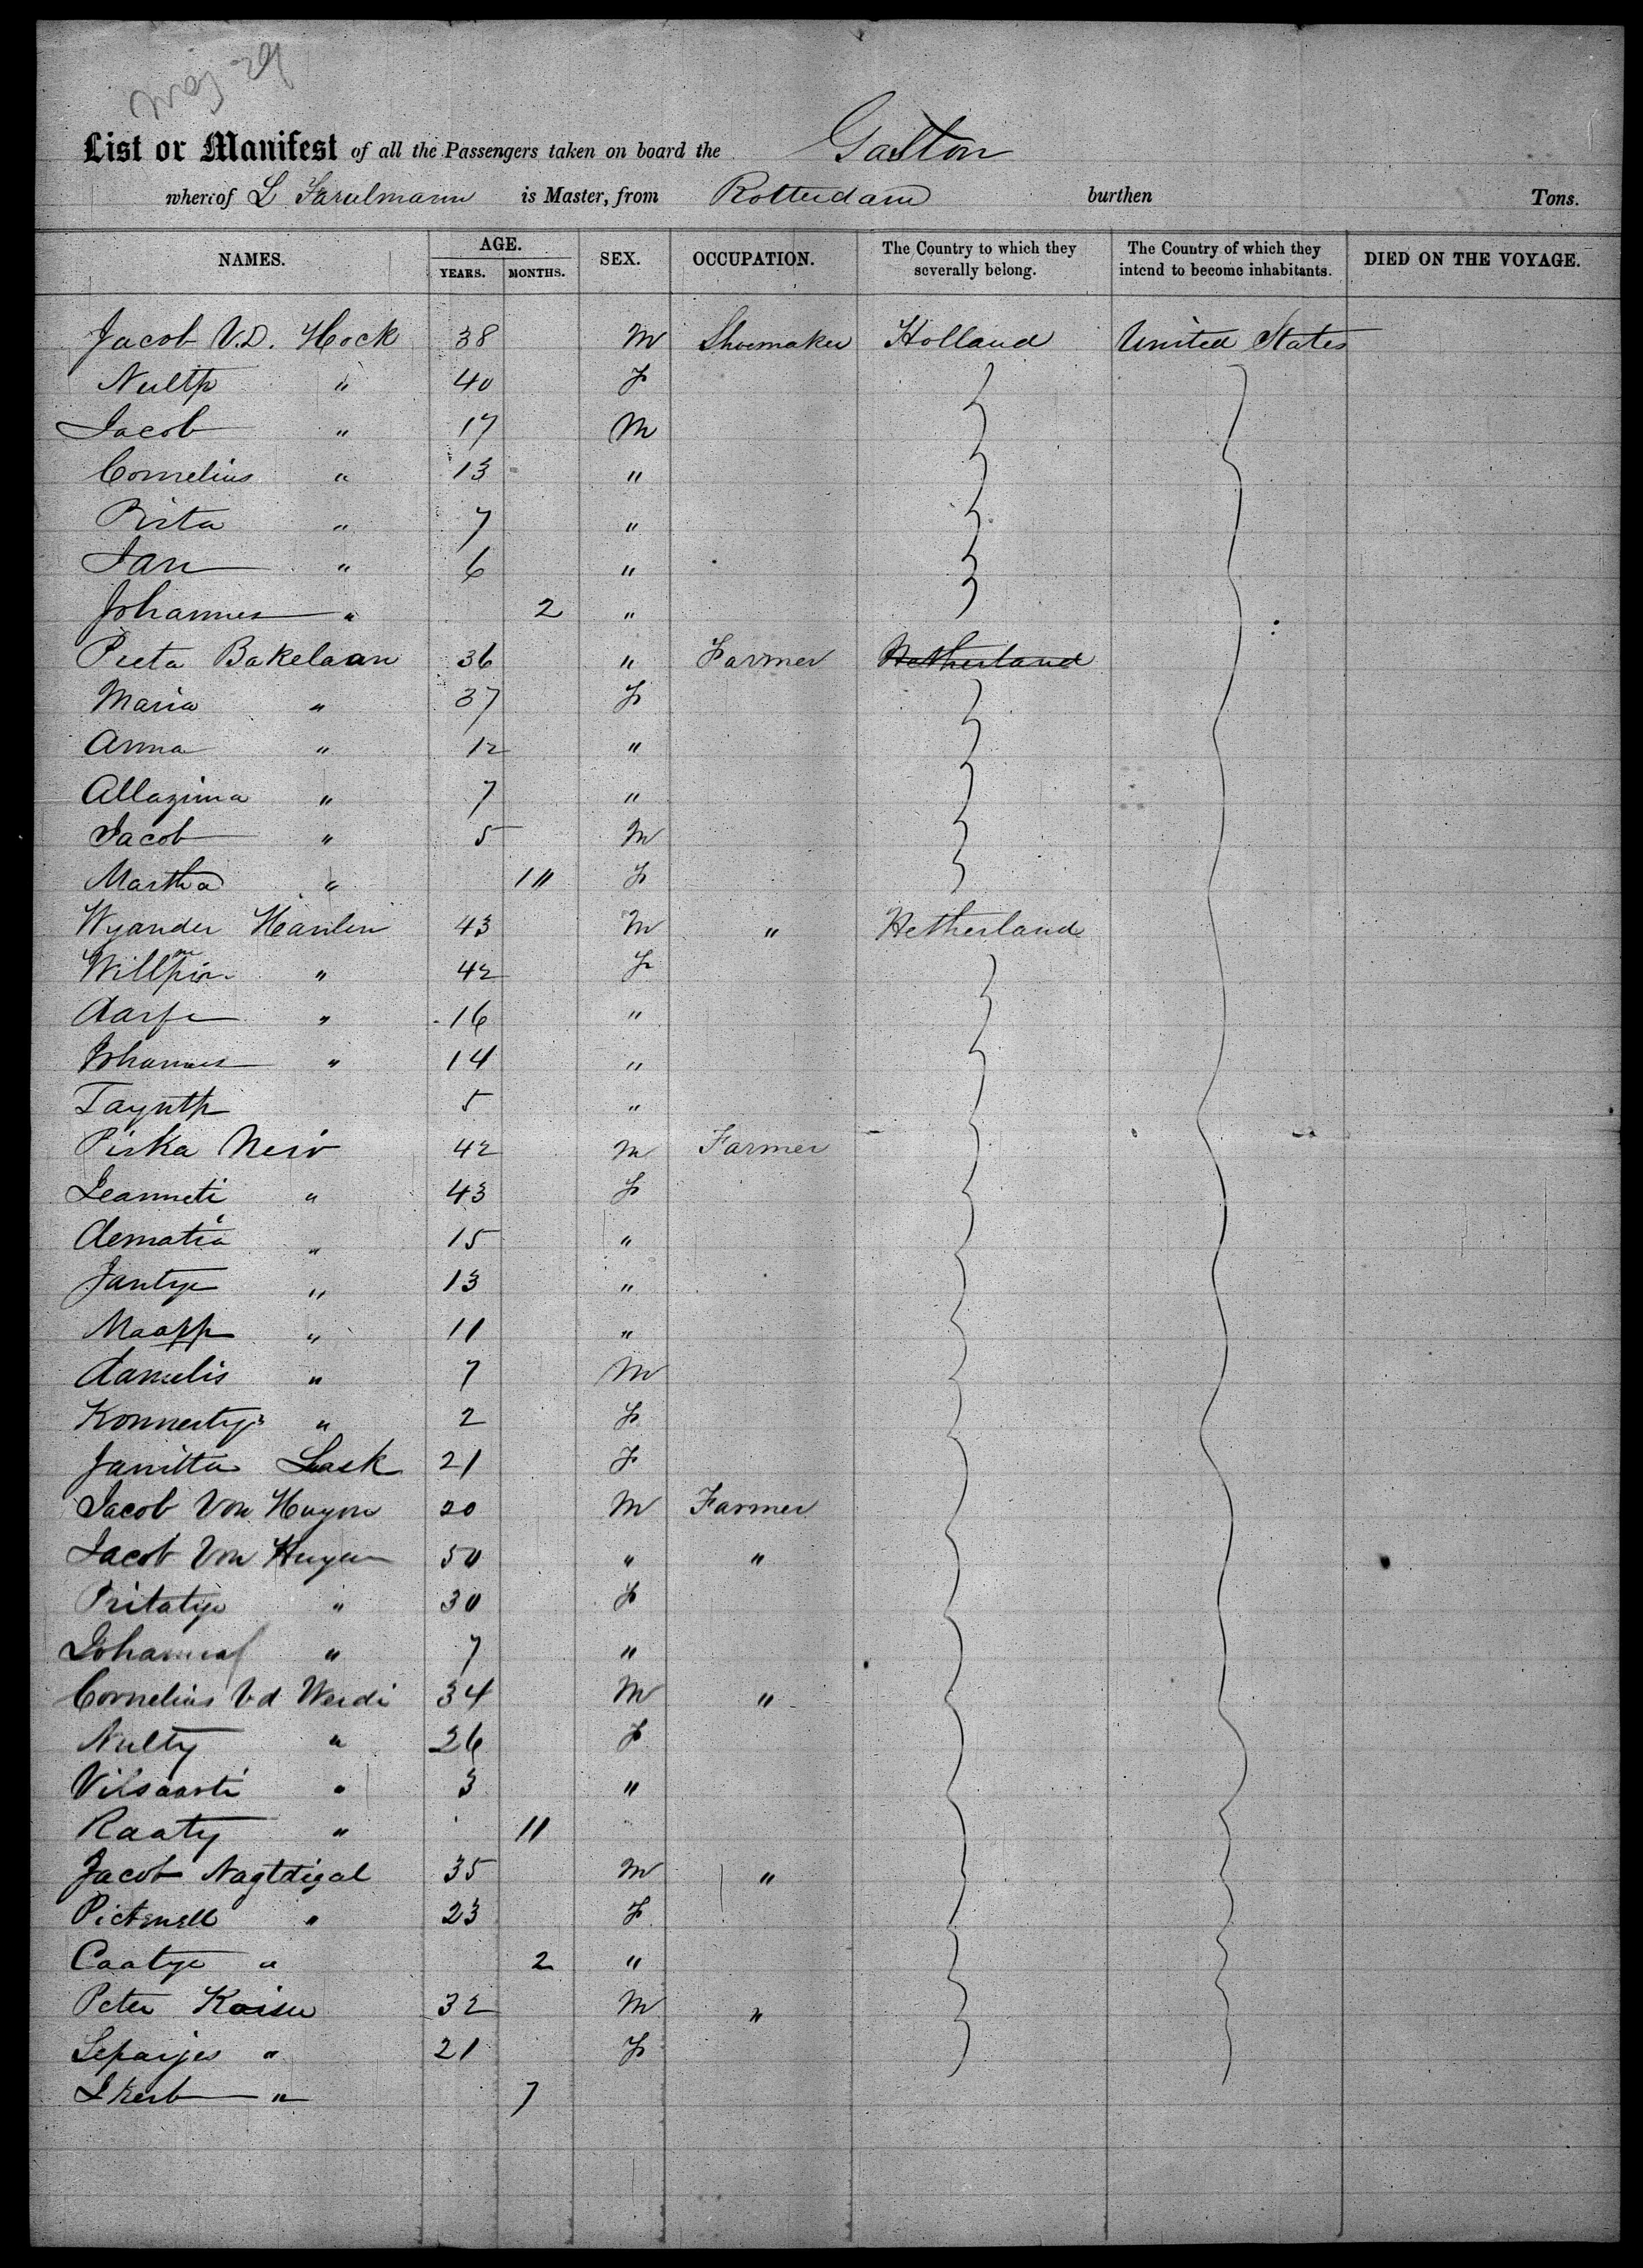 May 29
List or Manifest of all the Passengers taken on board the Gaston
whereof L is Master, from Rotterdam burthen Tons.
NAMES. AGE. YEARS. MONTHS. SEX. OCCUPATION. The Country to which they severally belong. The Country of which they intend to become inhabitants. DIED ON THE VOYAGE.
Jacob V.D. Hock 38 M Shoemaker Holland United States
Nultp " 40 F
Jacob " 17 M
Cornelius " 13 "
Pista " 7 "
Jan " 6 "
Johannes " 2 "
Pieta Bakelaan 36 " Farmer Netherland
Maria " 37 F
Anna " 12 "
Allazima " 7 "
Jacob " 5 M
Martha " F
Wyander Hanlin 43 M " Netherland
" 42 F
Aarfe " 16 "
Johannes " 14 "
Tayntp 5 "
Piska Neiv 42 M Farmer
Jeanneti " 43 F
Aematia " 15 "
Jantye " 13 "
Maapp " 11 "
Aamelis " 7 M
" 2 F
Janitta Lask 21 F
Jacob Von Huyon 20 M Farmer
Jacob Von Huyen 50 " "
Pritatye " 30 F
" 7 "
Cornelius Vd Werdi 34 M "
Nulty " 26 F
Vilsaarti " 3 "
Raaty " 11
Jacob Nagtdigal 35 M "
Pictenell " 23 F
Caatye " 2 "
Peter Kaiser 32 M "
Separjes " 21 F
" 7